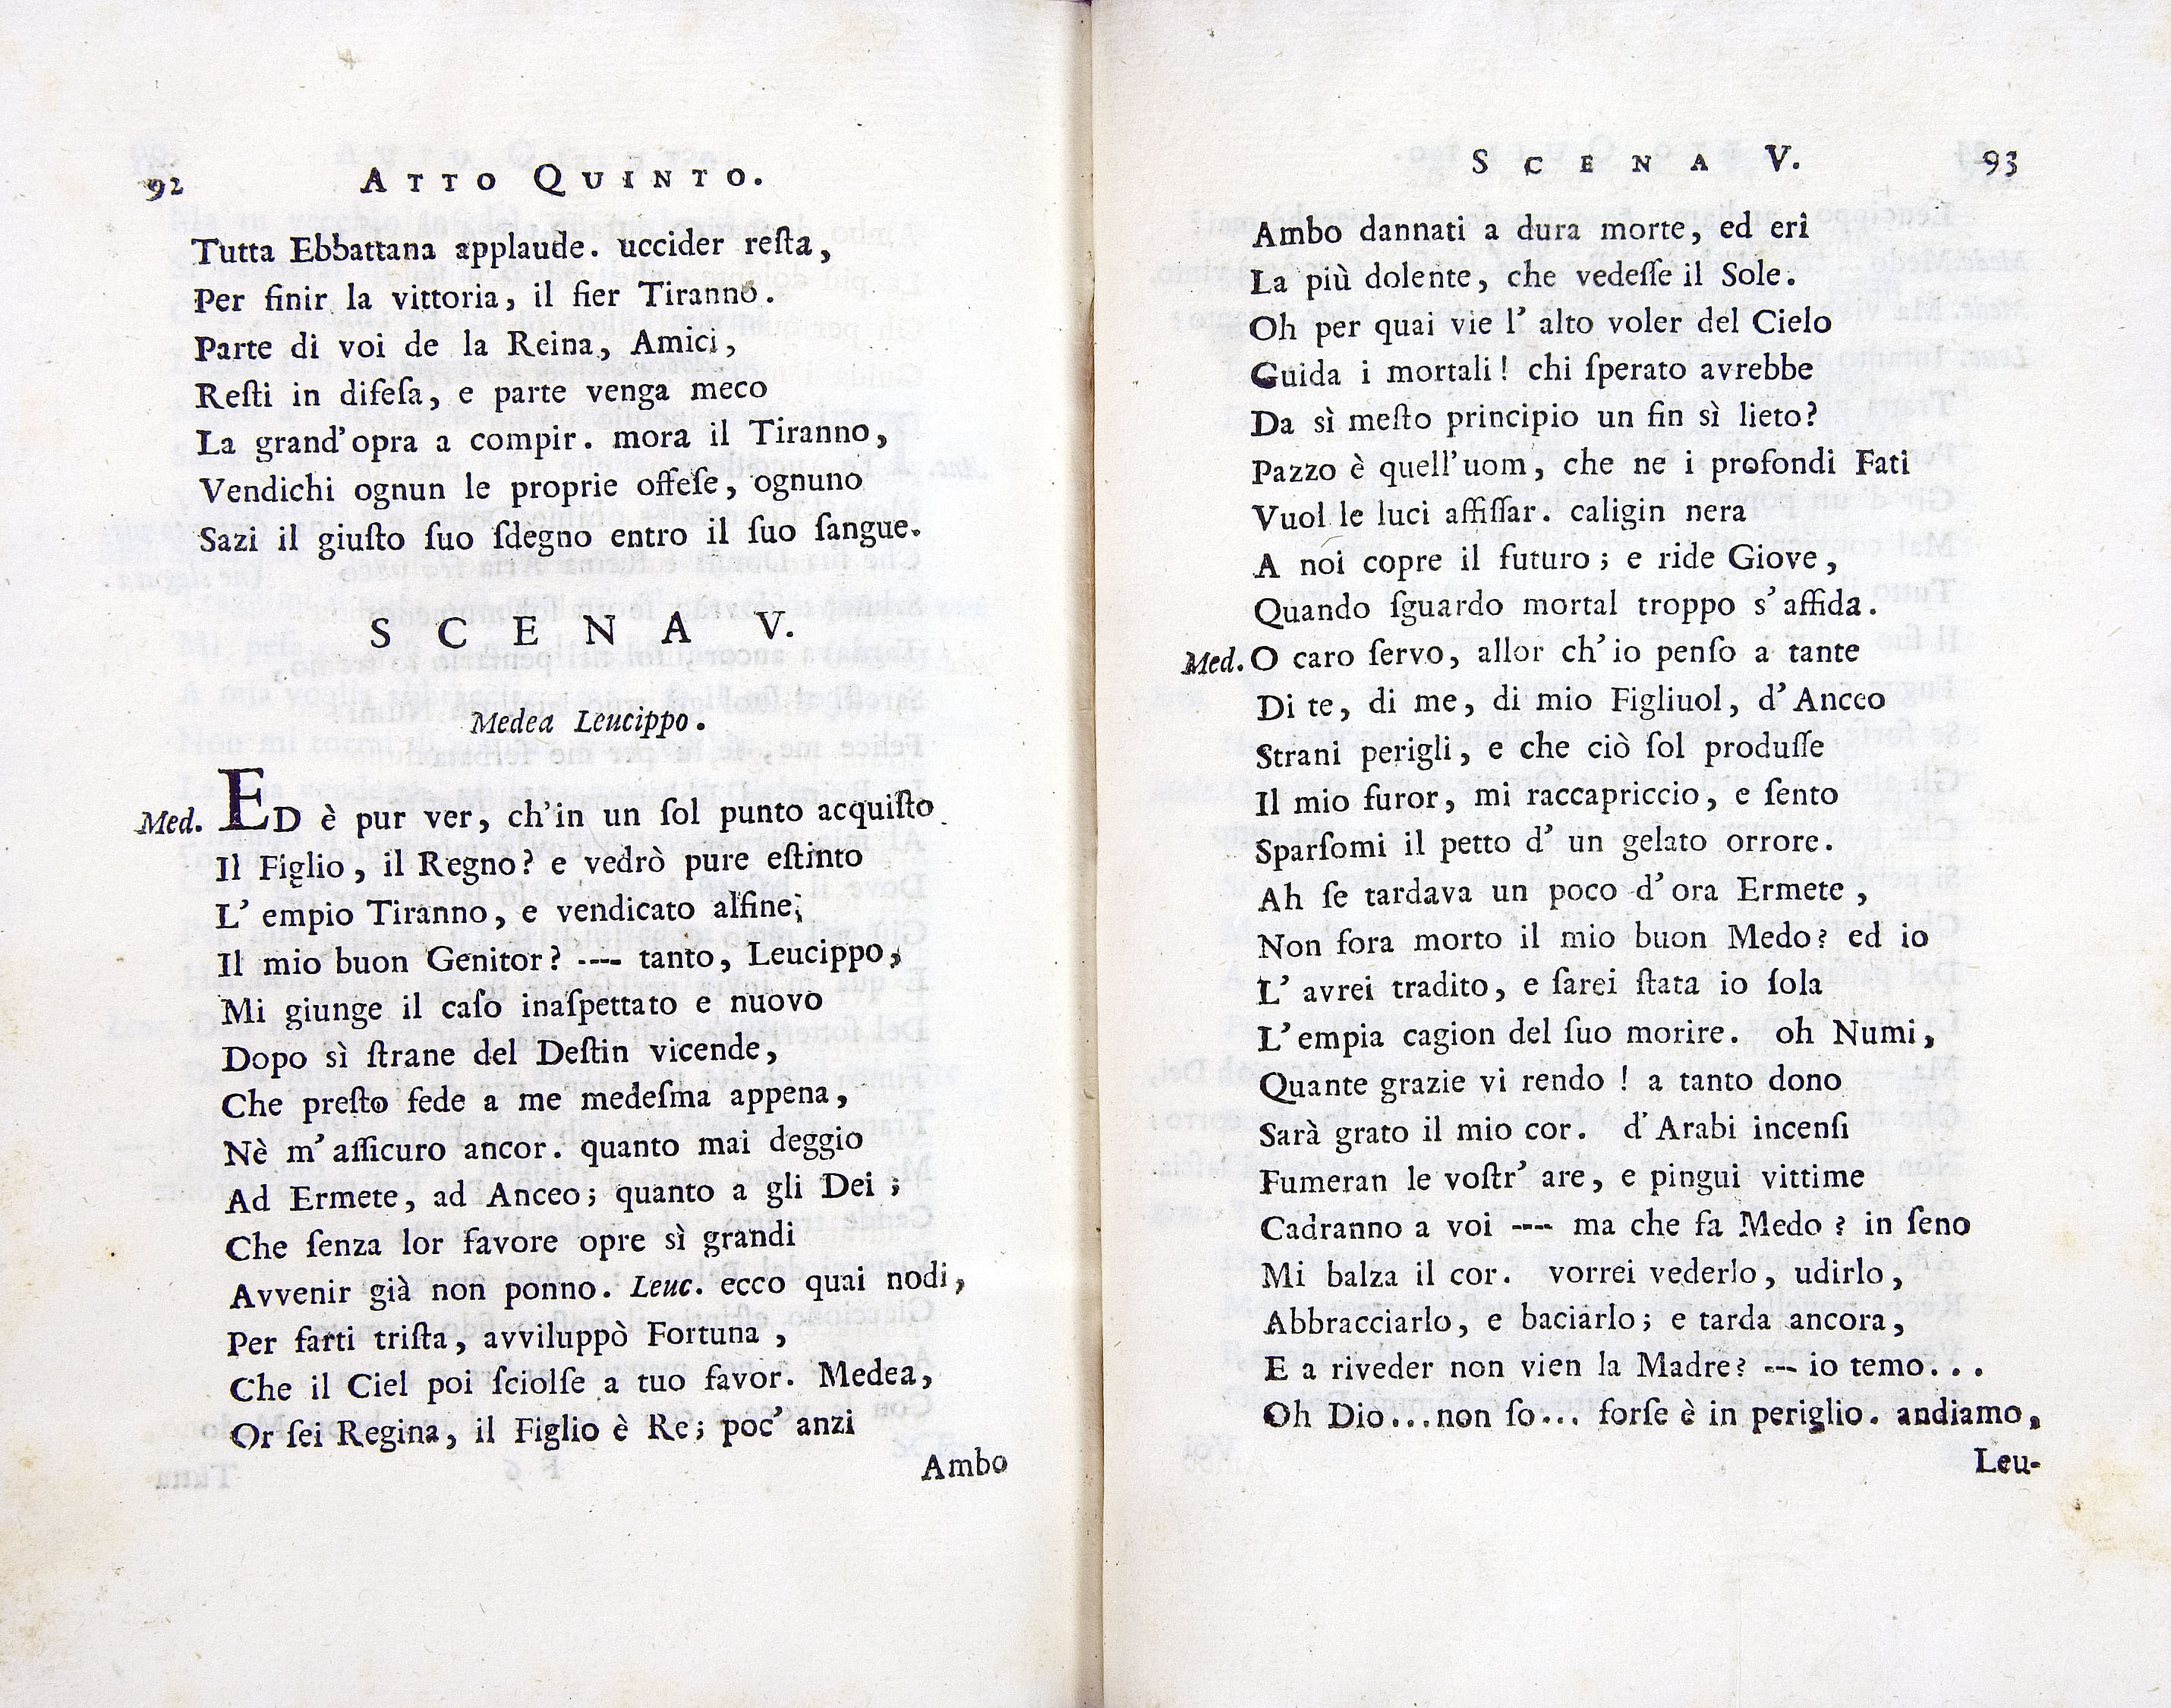 92 ATTO QUINTO.
Tutta Ebbattana applaude. uccider reſta,
Per finir la vittoria, il fier Tiranno.
Parte di voi de la Reina, Amici,
Reſti in difeſa, e parte venga meco
La grand' opra a compir. mora il Tiranno,
Vendichi ognun le proprie offeſe, ognuno
Sazi il giuſto ſuo ſdegno entro il ſuo ſangue.
SCENA V.
Medea Leucippo.
Med. ED è pur ver, ch'in un ſol punto acquiſto
Il Figlio, il Regno? e vedrò pure eſtinto
L' empio Tiranno, e vendicato alfine;
Il mio buon Genitor? ---- tanto, Leucippo,
Mi giunge il caſo inaſpettato e nuovo
Dopo sì ſtrane del Deſtin vicende,
Che preſto fede a me medeſma appena,
Nè m' aſſicuro ancor. quanto mai deggio
Ad Ermete, ad Anceo; quanto a gli Dei;
Che ſenza lor favore opre sì grandi
Avvenir già non ponno. Leuc. ecco quai nodi,
Per farti triſta, avviluppò Fortuna,
Che il Ciel poi ſciolſe a tuo favor. Medea,
Or ſei Regina, il Figlio è Re; poc' anzi
Ambo
SCENA V. 93
Ambo dannati a dura morte, ed eri
La più dolente, che vedeſſe il Sole.
Oh per quai vie l' alto voler del Cielo
Guida i mortali! chi ſperato avrebbe
Da sì meſto principio un fin sì lieto?
Pazzo è quell' uom, che ne i profondi Fati
Vuol le luci affiſſar. caligin nera
A noi copre il futuro; e ride Giove,
Quando ſguardo mortal troppo s' affida.
Med. O caro ſervo, allor ch' io penſo a tante
Di te, di me, di mio Figliuol, d' Anceo
Strani perigli, e che ciò ſol produſſe
Il mio furor, mi raccapriccio, e ſento
Sparſomi il petto d' un gelato orrore.
Ah ſe tardava un poco d' ora Ermete,
Non fora morto il mio buon Medo? ed io
L' avrei tradito, e ſarei ſtata io ſola
L' empia cagion del ſuo morire. oh Numi,
Quante grazie vi rendo! a tanto dono
Sarà grato il mio cor. d' Arabi incenſi
Fumeran le voſtr' are, e pingui vittime
Cadranno a voi ---- ma che fa Medo? in ſeno
Mi balza il cor. vorrei vederlo, udirlo,
Abbracciarlo, e baciarlo; e tarda ancora,
E a riveder non vien la Madre? --- io temo...
Oh Dio... non ſo... forſe è in periglio. andiamo,
Leu-